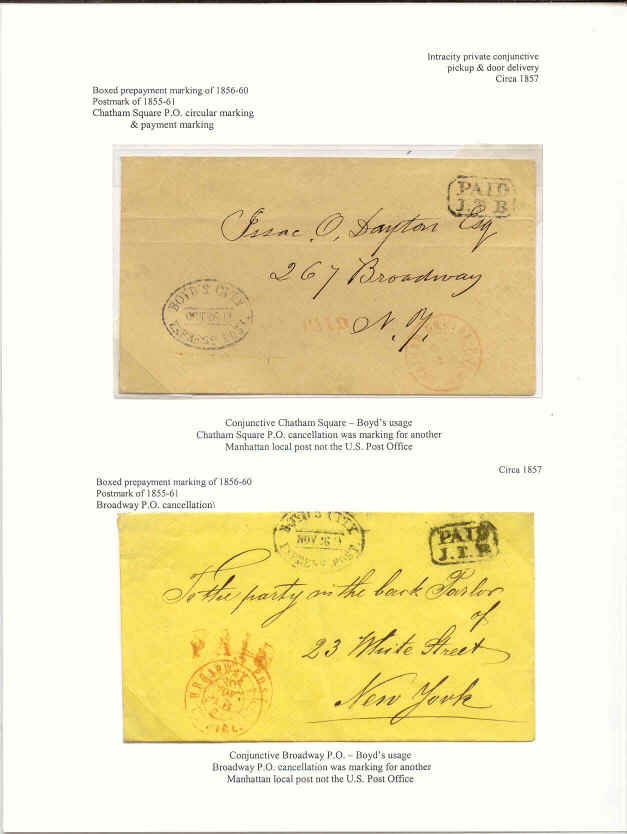 Intracity private conjunctive
pickup & door delivery
Circa 1857
Boxed prepayment marking of 1856-60
Postmark of 1855-61
Chatham Square P.O. circular marking
& payment marking
PAID
J.T.B
Issac. O, Dayton Esq
267 Broadway
N.Y.
BOYD'S CITY
OCT 26
EXPRESS POST
PAID
Conjunctive Chatham Square – Boyd's usage
Chatham Square P.O. cancellation was marking for another
Manhattan local post not the U.S. Post Office
Circa 1857
Boxed prepayment marking of 1856-60
Postmark of 1855-61
Broadway P.O. cancellation\
BOYD'S CITY
NOV 26
EXPRESS POST
PAID
J.T.B
To the party in the back Parlor
of
23 White Street
New York
PAID
BROADWAY POST
Conjunctive Broadway P.O. – Boyd's usage
Broadway P.O. cancellation was marking for another
Manhattan local post not the U.S. Post Office